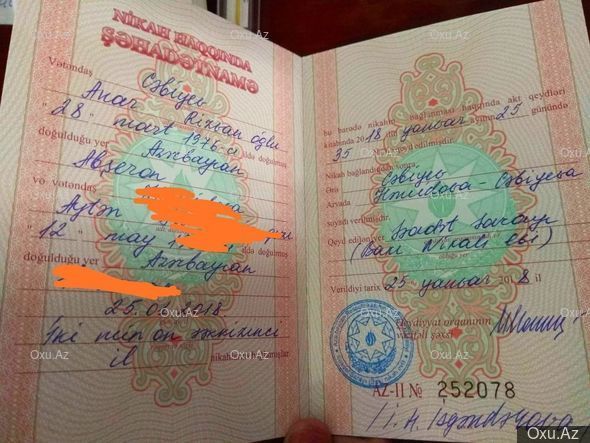 NİKAH HAQQINDA
ŞƏHADƏTNAMƏ
Vətəndaş Cəbiyev
Anar Rizvan oğlu
"28" mart 1976-cı ildə doğulmuş
doğulduğu yer Azərbaycan
Abşeron
və vətəndaş
Aytən
"12" may ildə doğulmuş
doğulduğu yer Azərbaycan
25.01.2018
iki min on səkkizinci
il nikah
bu barədə nikahın bağlanması haqqında akt qeydləri
kitabında 2018 ilin yanvar ayının 25 günündə
35 №li qeyd edilmişdir.
Nikah bağlandıqdan sonra
Ərə Cəbiyev
Arvada - Cəbiyeva
soyadı verilmişdir.
Qeyd edilən yer Səadət Sarayı
(Bakı Nikah Evi)
Verildiyi tarix 25 yanvar 2018 il
Qeydiyyat orqanının
vəzifəli şəxsi
AZ-II № 252078
Oxu.Az
Oxu.Az
Oxu.Az
Oxu.Az
Oxu.Az
Oxu.Az
Oxu.Az
Oxu.Az
Oxu.Az